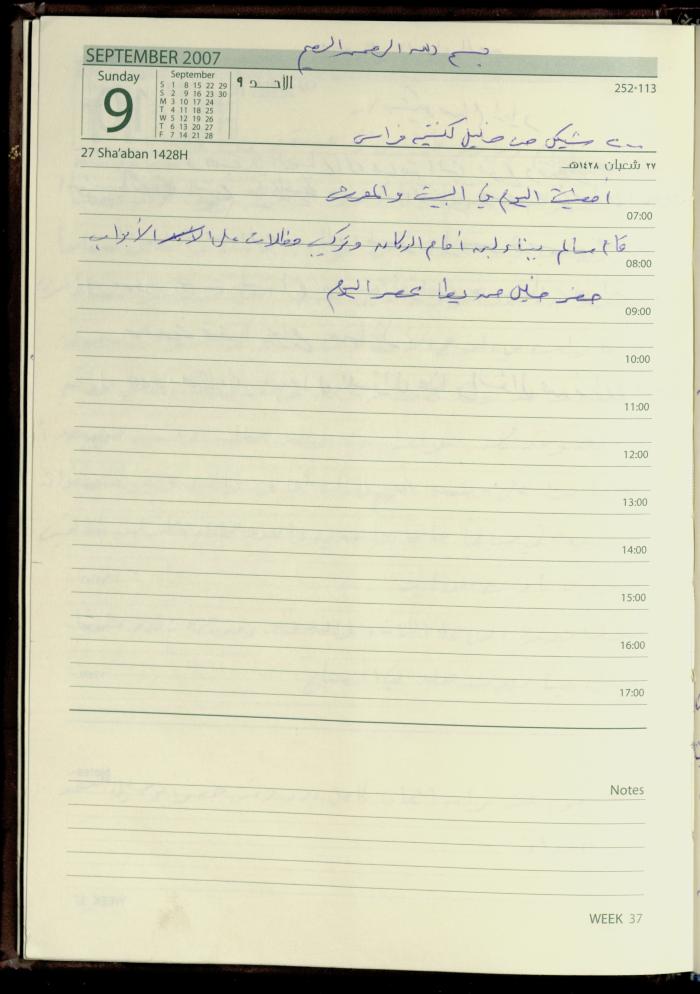 بسم الله الرحمن الرحيم
SEPTEMBER 2007
252-113
Sunday
9
September
S 1 8 15 22 29
S 2 9 16 23 30
M 3 10 17 24
T 4 11 18 25
W 5 12 19 26
T 6 13 20 27
F 7 14 21 28
الأحد ٩
٢٠٠ شيكل من خليل
27 Sha'aban 1428H
٢٧ شعبان ١٤٢٨هـ
أمضيت اليوم في البيت والمعرض
07:00
قام سالم ببناء لبن أمام الدكان وتركيب مظلات على الأبواب
08:00
حضر خليل من يطا عصر اليوم
09:00
10:00
11:00
12:00
13:00
14:00
15:00
16:00
17:00
Notes
WEEK 37